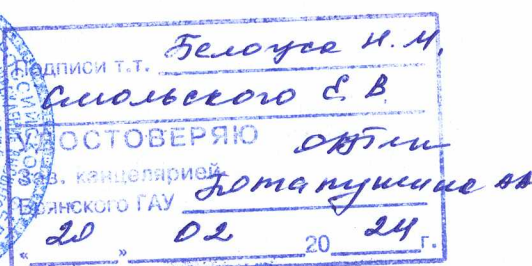 Подписи т.т. Белоуса Н. М.
Смольского Е. В.
УДОСТОВЕРЯЮ
Зав. канцелярией
Брянского ГАУ
« 20 » 02 20 24 г.